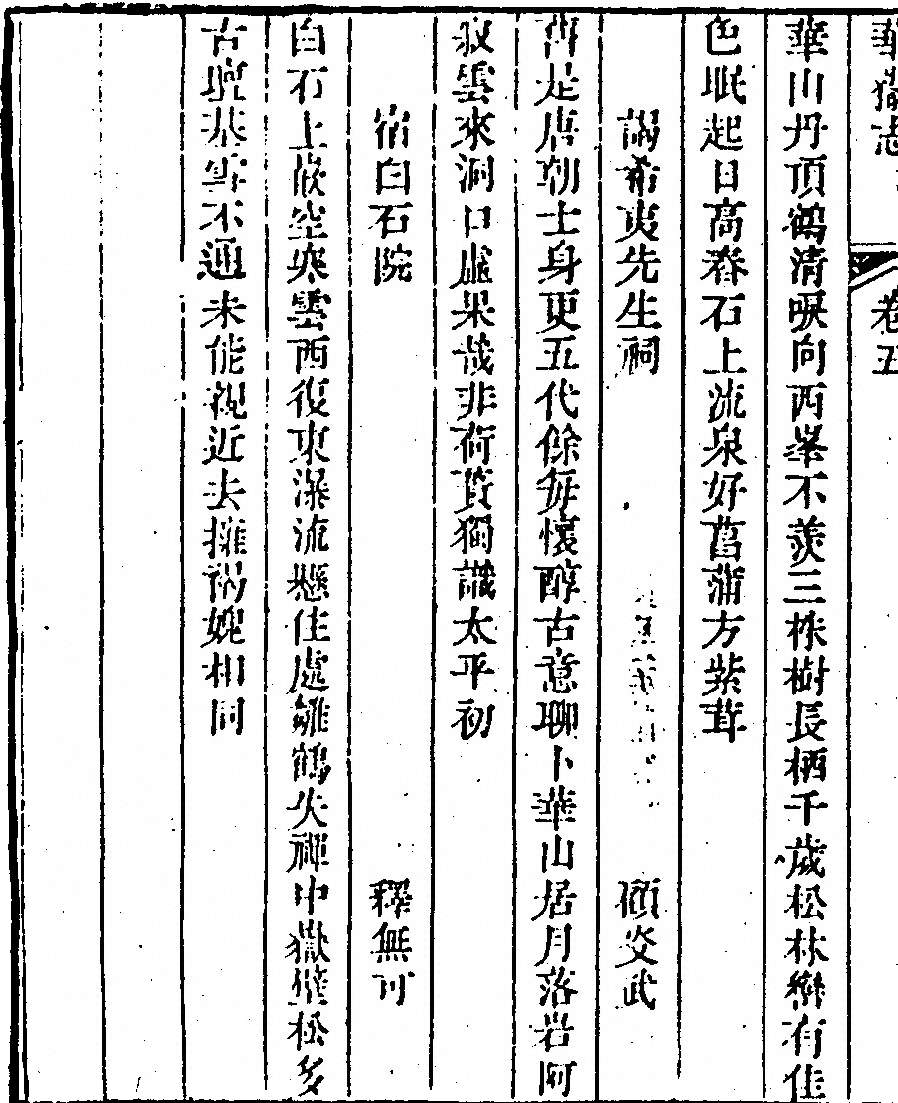 華嶽志 卷五
華山丹頂鶴清唳向西峯不羨三株樹長栖千歲松林巒有佳
色眠起日高舂石上流泉好菖蒲方紫茸
謁希夷先生祠 顧炎武
是唐朝士身更五代餘每懷醇古意聊卜華山居月落岩阿
寂雲來洞口虛果哉非荷蕢獨識太平初
宿白石院 釋無可
白石上嵌空寒雲西復東瀑流懸住處雛鶴失禪中嶽壁松多
古壇基雪不通未能親近去擁褐媿相同